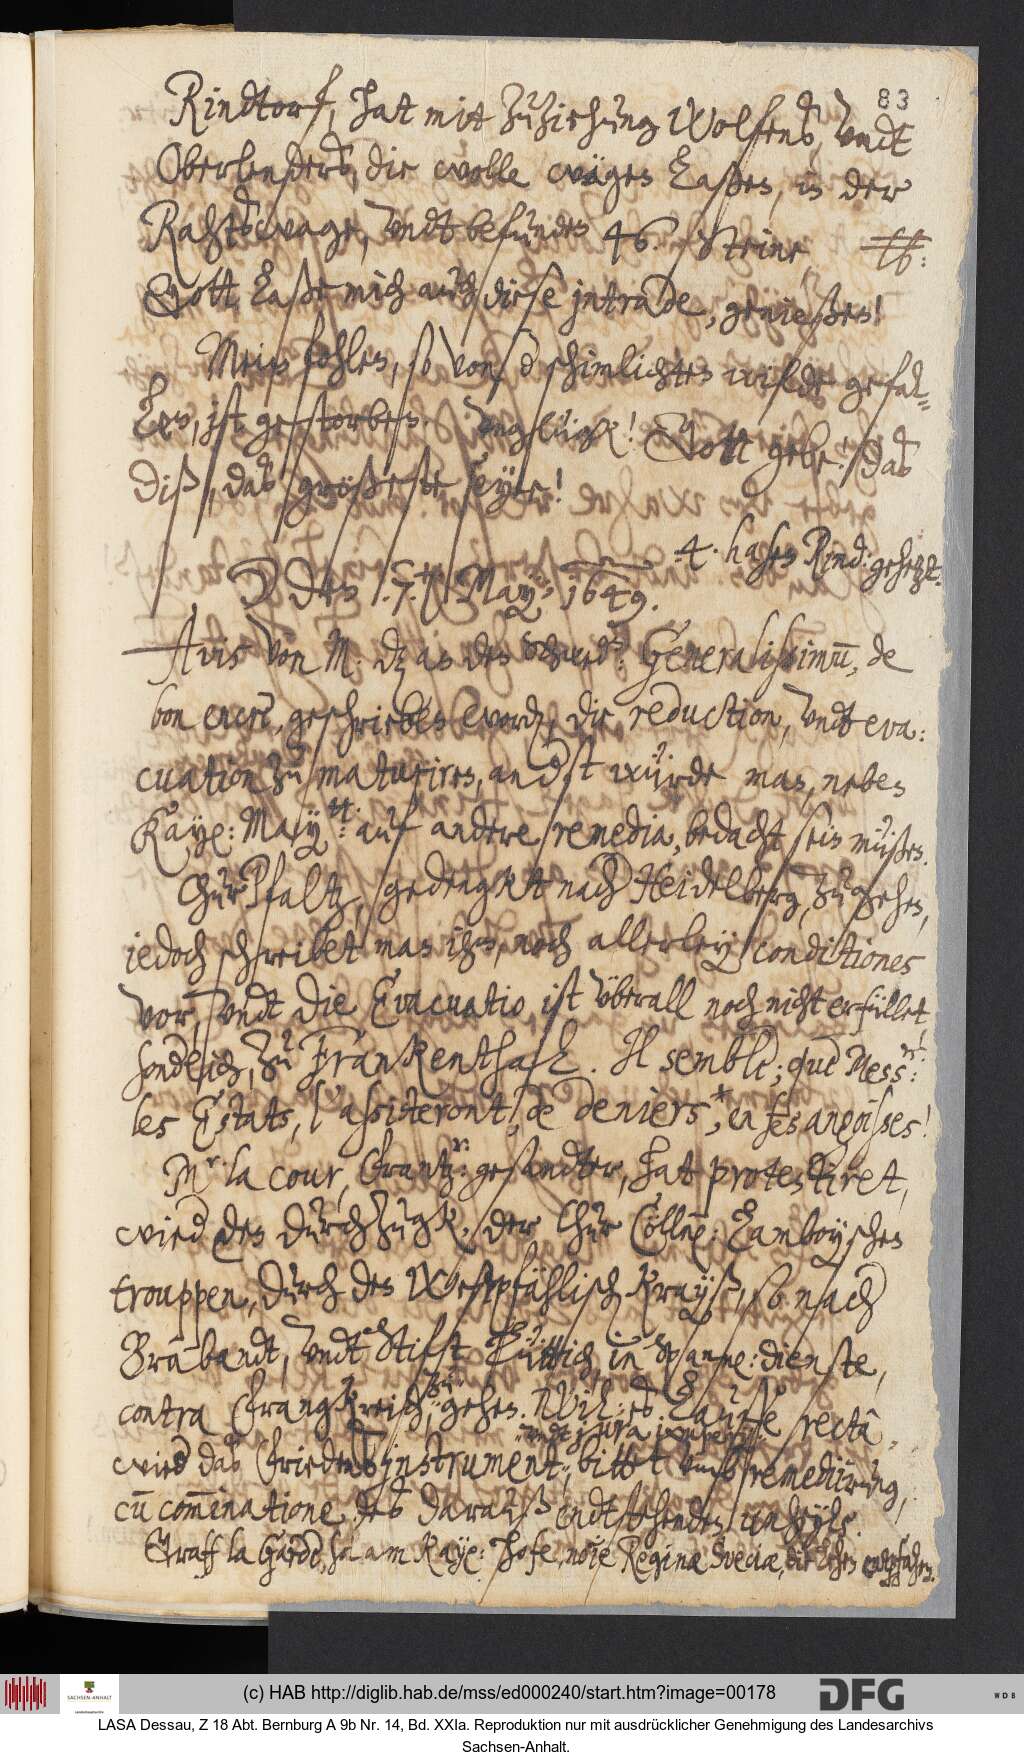 83
Rindtorf, hat mit zuziehung Wolfens, undt
Oberlenders, die wolle wägen laßen, in der
Rahtswage, undt befunden 46. Steine,
Gott laße mich auch diese intrade, genießen!
Mein fohlen, so von schimlichten wilde gefal-
len, ist gestorben. Unglück! Gott gebe! das
diß, das größeste seye!
4. hasen Rind: gehetzt.
☽ den 7. May, 1649.
Avis von M. dz an den Schwed: Generalissimū, de
bon encre, geschrieben word, die reduction, undt eva:
cuation zu maturiren, andst würde man, neben
Kay: May: auf andere remedia, bedacht sein müßen.
Chur Pfaltz, gedengkt nach Heidelberg, zu gehen,
iedoch schreibet man ihm, noch allerley conditiones
vor, undt die Evacuatio ist überall noch nicht erfüllet,
sonderlich, zu Frankenthal. Il semble; que Mess:rs
les Estats, l'assisteront, de deniers, en ses angoisses!
Mr la cour, Frantz: gesandter, hat protestiret,
wied den durchzugk, der Chur Cölln: Lamboyschen
trouppen, durch den Westpfählisch Krayß, so nach
Brabandt, undt Stift Lüttich, in Spann: dienste,
contra Frangkreich, zu gehen. Weil: es lauffe rectâ
undt jura imperij
wied das Friedensinstrument: bittet umb remediirung,
cū com̄inatione, des darauß endtstehenden unheyls.
Graff la Garde, ha am Kay: hofe, noīe Reginæ Sveciæ, die Lehen empfahen.
(c) HAB http://diglib.hab.de/mss/ed000240/start.htm?image=00178
SACHSEN-ANHALT
DFG
WDB
LASA Dessau, Z 18 Abt. Bernburg A 9b Nr. 14, Bd. XXIa. Reproduktion nur mit ausdrücklicher Genehmigung des Landesarchivs
Sachsen-Anhalt.